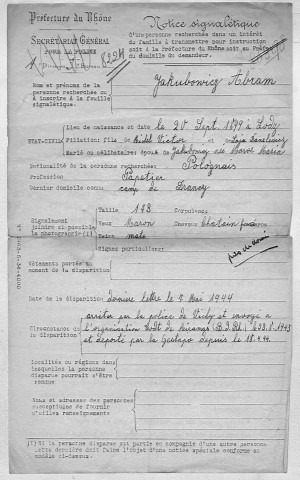 Préfecture du Rhône
Notice signalétique
SECRÉTARIAT GÉNÉRAL
POUR LA POLICE
D'une personne recherchée dans un intérêt
de famille à transmettre pour instruction
soit à la Préfecture du Rhône soit au Préfet
du domicile du demandeur.
8294
Nom et prénoms de la
personne recherchée ou
à inscrire à la feuille
signalétique.
Jakubowicz Abram
ETAT-CIVIL
Lieu de naissance et date le 20 Sept. 1899 à Lodz
Filiation: fils de Victor et de
Marié ou célibataire: époux de Jakubowicz née Maria
Nationalité de la personne recherchée: Polonais
Profession Papetier
Dernier domicile connu camp de Drancy
Signalement
(joindre si possible
la photographie(1)
Taille 173 Corpulence:
Yeux Marron Cheveux Châtain foncé
Teint mate
Signes particuliers
Vêtements portés au
moment de la disparition
Date de la disparition dernière lettre le 5 Mai 1944
Circonstance de
la disparition
arrêté par la police de Vichy et envoyé à
l'organisation Todt de (B.d.Rh.) le 23.8.1943
et déporté par la Gestapo depuis le 18.4.44.
Localités ou régions dans
lesquelles la personne
disparue pourrait s'être
rendue
Noms et adresses des personnes
susceptibles de fournir
d'utiles renseignements
(1) Si la personne disparue est partie en compagnie d'une autre personne
cette dernière doit faire l'objet d'une notice spéciale conforme au
modèle ci-dessus.